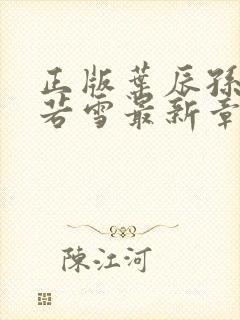 正版葉辰孫
若雪最新章
陳江河